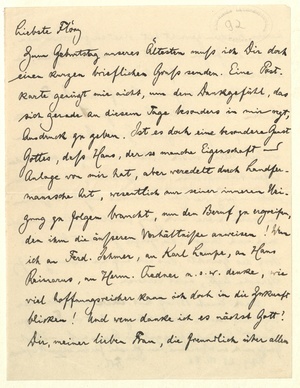 92
Liebste Flörz
Zum Geburtstag unseres Ältesten muß ich Dir doch
einen kurzen brieflichen Gruß senden. Eine Post-
karte genügt mir nicht, um dem Dankgefühl, das
sich gerade an diesem Tage besonders in mir regt,
Ausdruck zu geben. Ist es doch eine besondere Gnade
Gottes, daß Hans, der so manche Eigenschaft u.
Anlage von mir hat, aber veredelt durch
wesentlich nur seiner inneren Nei-
gung zu folgen braucht, um den Beruf zu ergreifen,
den ihm die äußeren Verhältnisse anweisen! Wenn
ich an Ferd. an Karl Lampe, an Hans
Reimarus, an Herm. u. s. w. denke, wie
viel hoffnungsreicher kann ich doch in die Zukunft
blicken! Und wem danke ich es nächst Gott?
Dir, meiner lieben Frau, die freundlich über allen